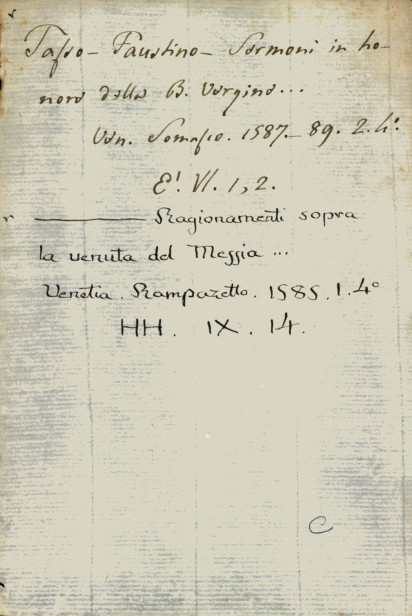 Tasso - Faustino - Sermoni in ho-
nore della B. Vergine...
Ven. Somasco. 1587-89. 2. 4°.
E! VI. 1, 2.
——— Ragionamenti sopra
la venuta del Messia ...
Venetia. Rampazetto. 1585. 1. 4°
HH. IX. 14.
C